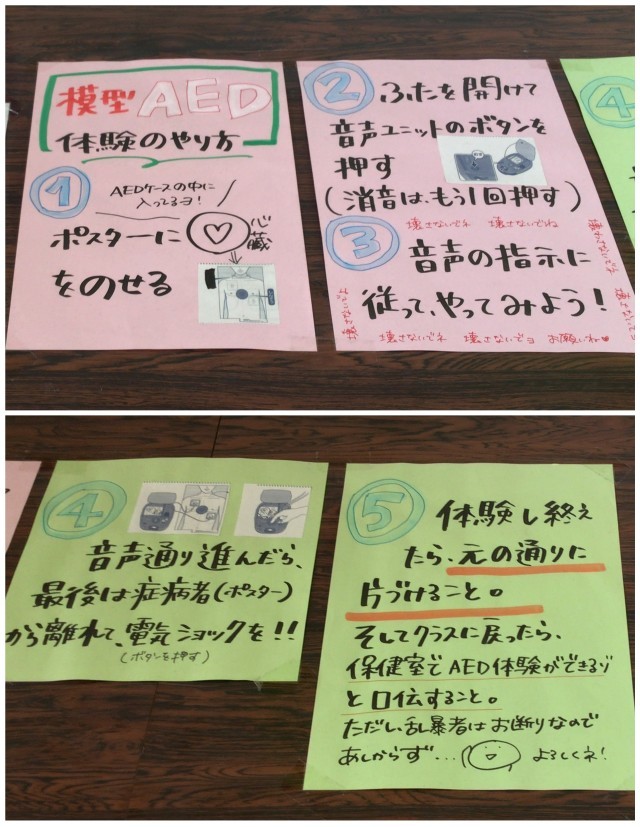 模型AED
体験のやり方
①
AEDケースの中に
入ってるヨ!
ポスターに♡心臓
をのせる
②ふたを開けて
音声ユニットのボタンを
押す
(消音は、もう1回押す)
壊さないでネ 壊さないでね
③音声の指示に
従って、やってみよう!
壊さないでネ 壊さないでヨ お願いね♥
④
音声通り進んだら、
最後は症病者(ポスター)
から離れて、電気ショックを!!
(ボタンを押す)
⑤体験し終え
たら、元の通りに
片づけること。
そしてクラスに戻ったら、
保健室でAED体験ができるゾ
と口伝すること。
ただし乱暴者はお断りなので
あしからず…
よろしくネ!